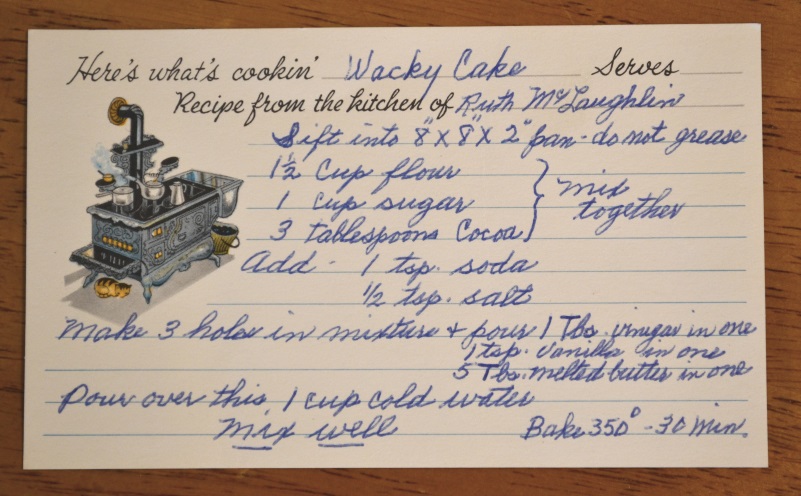 Here's what's cookin' Wacky Cake Serves
Recipe from the kitchen of Ruth McLaughlin
Sift into 8" X 8" X 2" pan - do not grease
1 1/2 Cup flour
1 cup sugar
3 tablespoons Cocoa
} mix together
Add - 1 tsp. soda
1/2 tsp. salt
Make 3 holes in mixture + pour 1 Tbs. vinegar in one
1 tsp. vanilla in one
5 Tbs. melted butter in one
Pour over this 1 cup cold water
mix well Bake 350° - 30 min.